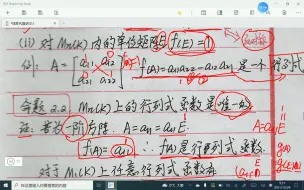 (ii) 对 Mn(K) 内的单位矩阵E, f(E)=1
例: A = [a11 a12
a21 a22] f(A)=a11a22-a12a21 是一个行列式
命题2.2. Mn(K) 上的行列式函数是唯一的
证: 首先一阶方阵. A=a11=a11E. A=a11E
f(A)=a11 ∴ f(A)是行列式函数.
对于 Mn(K) 上任意行列式函数